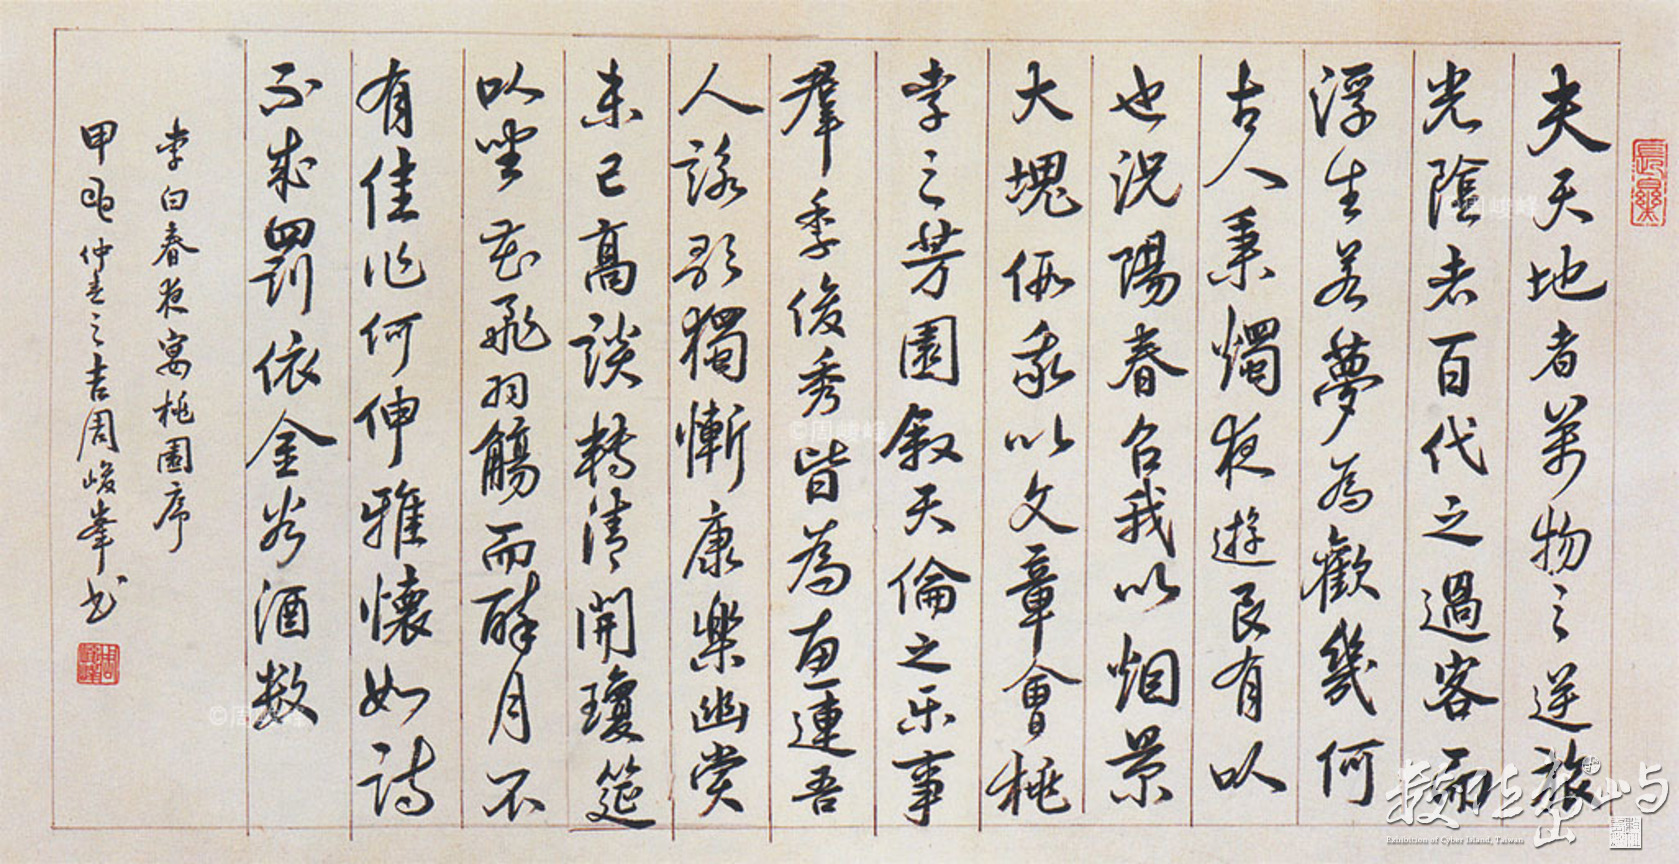 夫天地者萬物之逆旅
光陰者百代之過客而
浮生若夢為歡幾何
古人秉燭夜遊良有以
也況陽春召我以烟景
大塊假我以文章會桃
李之芳園叙天倫之乐事
羣季俊秀皆為惠連吾
人詠歌獨慚康樂幽賞
未已高談轉清開瓊筵
以坐花飛羽觴而醉月不
有佳作何伸雅懷如詩
不成罰依金谷酒数
李白春夜宴桃園序
甲 仲春之吉周峻峯书
©周峻峰
©周峻峰
©周峻峰
數位島嶼
Exhibition of Cyber Island, Taiwan